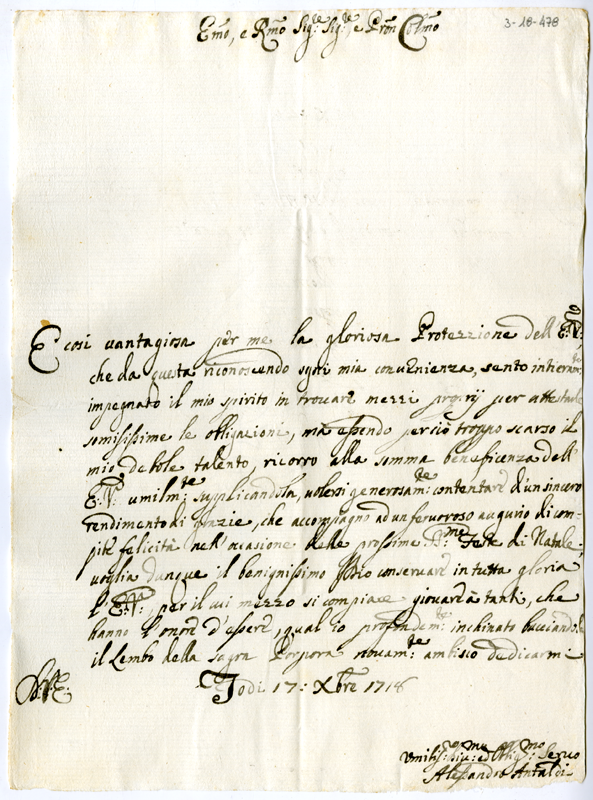 3-18-478
Emo, e Rmo Sig:re Sig:re e Pron Colmo
E così vantagiosa per me la gloriosa Protezzione dell'E.V:
che da questa riconoscendo ogni mia convenienza, sento intieram:te
impegnato il mio spirito in trovare mezzi proprij per attestarle
somisissime le obligazioni, ma essendo perciò troppo scarso il
mio debole talento, ricorro alla somma beneficenza dell'
E.V: umilm:te supplicandola, volersi generosam:te contentare d'un sincero
rendimento di grazie, che accompagno ad un fervoroso augurio di com-
pite felicità nell'ocasione delle prossime S:me Feste di Natale;
voglia dunque il benignissimo Iddio conservare in tutta gloria
l'E.V:, per il cui mezzo si compiace giovare à tanti, che
hanno l'onore d'essere, qual io profondem:te inchinato bacciando:le
il Lembo della Sagra Porpora novam:te ambisco dedicarmi
D.V.E.
Todi 17: Xbre 1718
Umiliss:mo Div:mo ed Obblig:mo Servo
Alessandro Antaldi